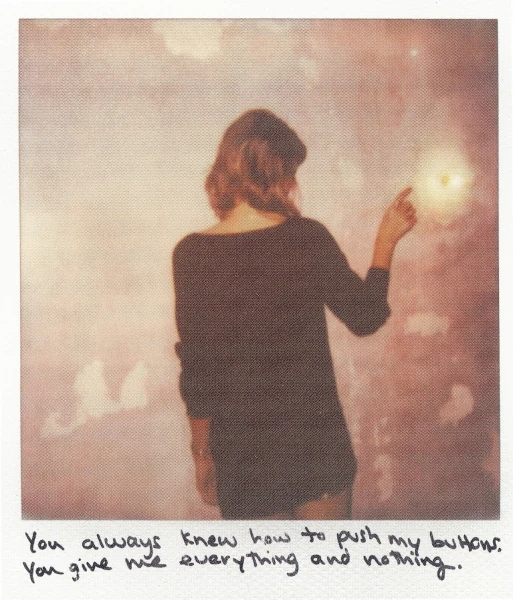 You always knew how to push my buttons.
You give me everything and nothing.